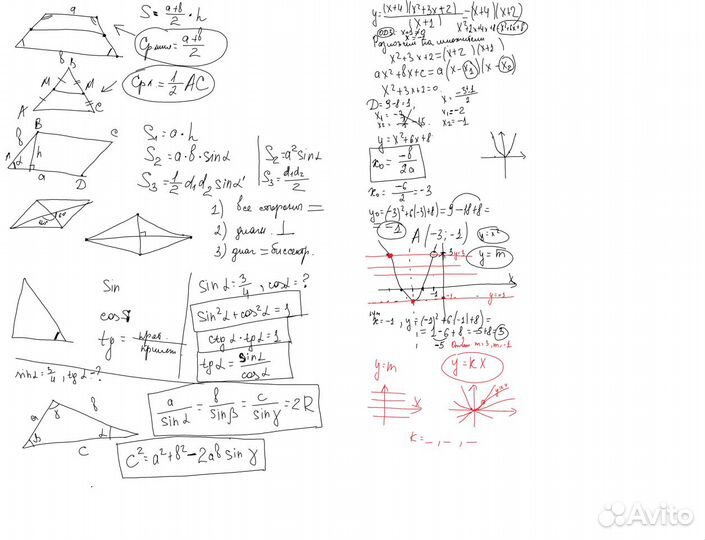 a
b
S = (a+b)/2 · h
Ср.лин = (a+b)/2
B
M M
A C
Ср.л. = 1/2 AC
b B C
A α h
a D
S₁ = a · h
S₂ = a · b · sinα
S₃ = 1/2 d₁d₂ sinα'
S₂ = a² sinα
S₃ = d₁d₂/2
1) все стороны =
2) диагн. ⊥
3) диаг = биссектр.
Sin
cos
tg = прот/прилеж
sinα = 3/4, tgα - ?
sinα = 3/4, cosα = ?
sin²α + cos²α = 1
ctgα · tgα = 1
tgα = sinα/cosα
a γ b
β α
c
a/sinα = b/sinβ = c/sinγ = 2R
c² = a² + b² - 2ab sin γ
y = (x+4)(x²+3x+2)/(x+1) = (x+4)(x+2)
ОДЗ: x+1≠0
x²+2x+4x+8 x²+6x+8
Разложим на множители
x²+3x+2 = (x+2)(x+1)
ax²+bx+c = a(x-x₁)(x-x₂)
x²+3x+2=0
D = 9-8 = 1, x = (-3±1)/2
x₁ = -2
x₂ = -1
y = x²+6x+8
x₀ = -b/2a
x₀ = -6/2 = -3
y₀ = (-3)²+6(-3)+8) = 9-18+8 =
= -1 A(-3; -1) y = x²
3 y = m
-1 x
-1 y = -1
x = -1, y = (-1)²+6(-1)+8) =
= 1-6+8 = -5+8 = 3
-5 Ответ m=3, m=-1
y = m y = kx
x
k = _, _, _
Avito